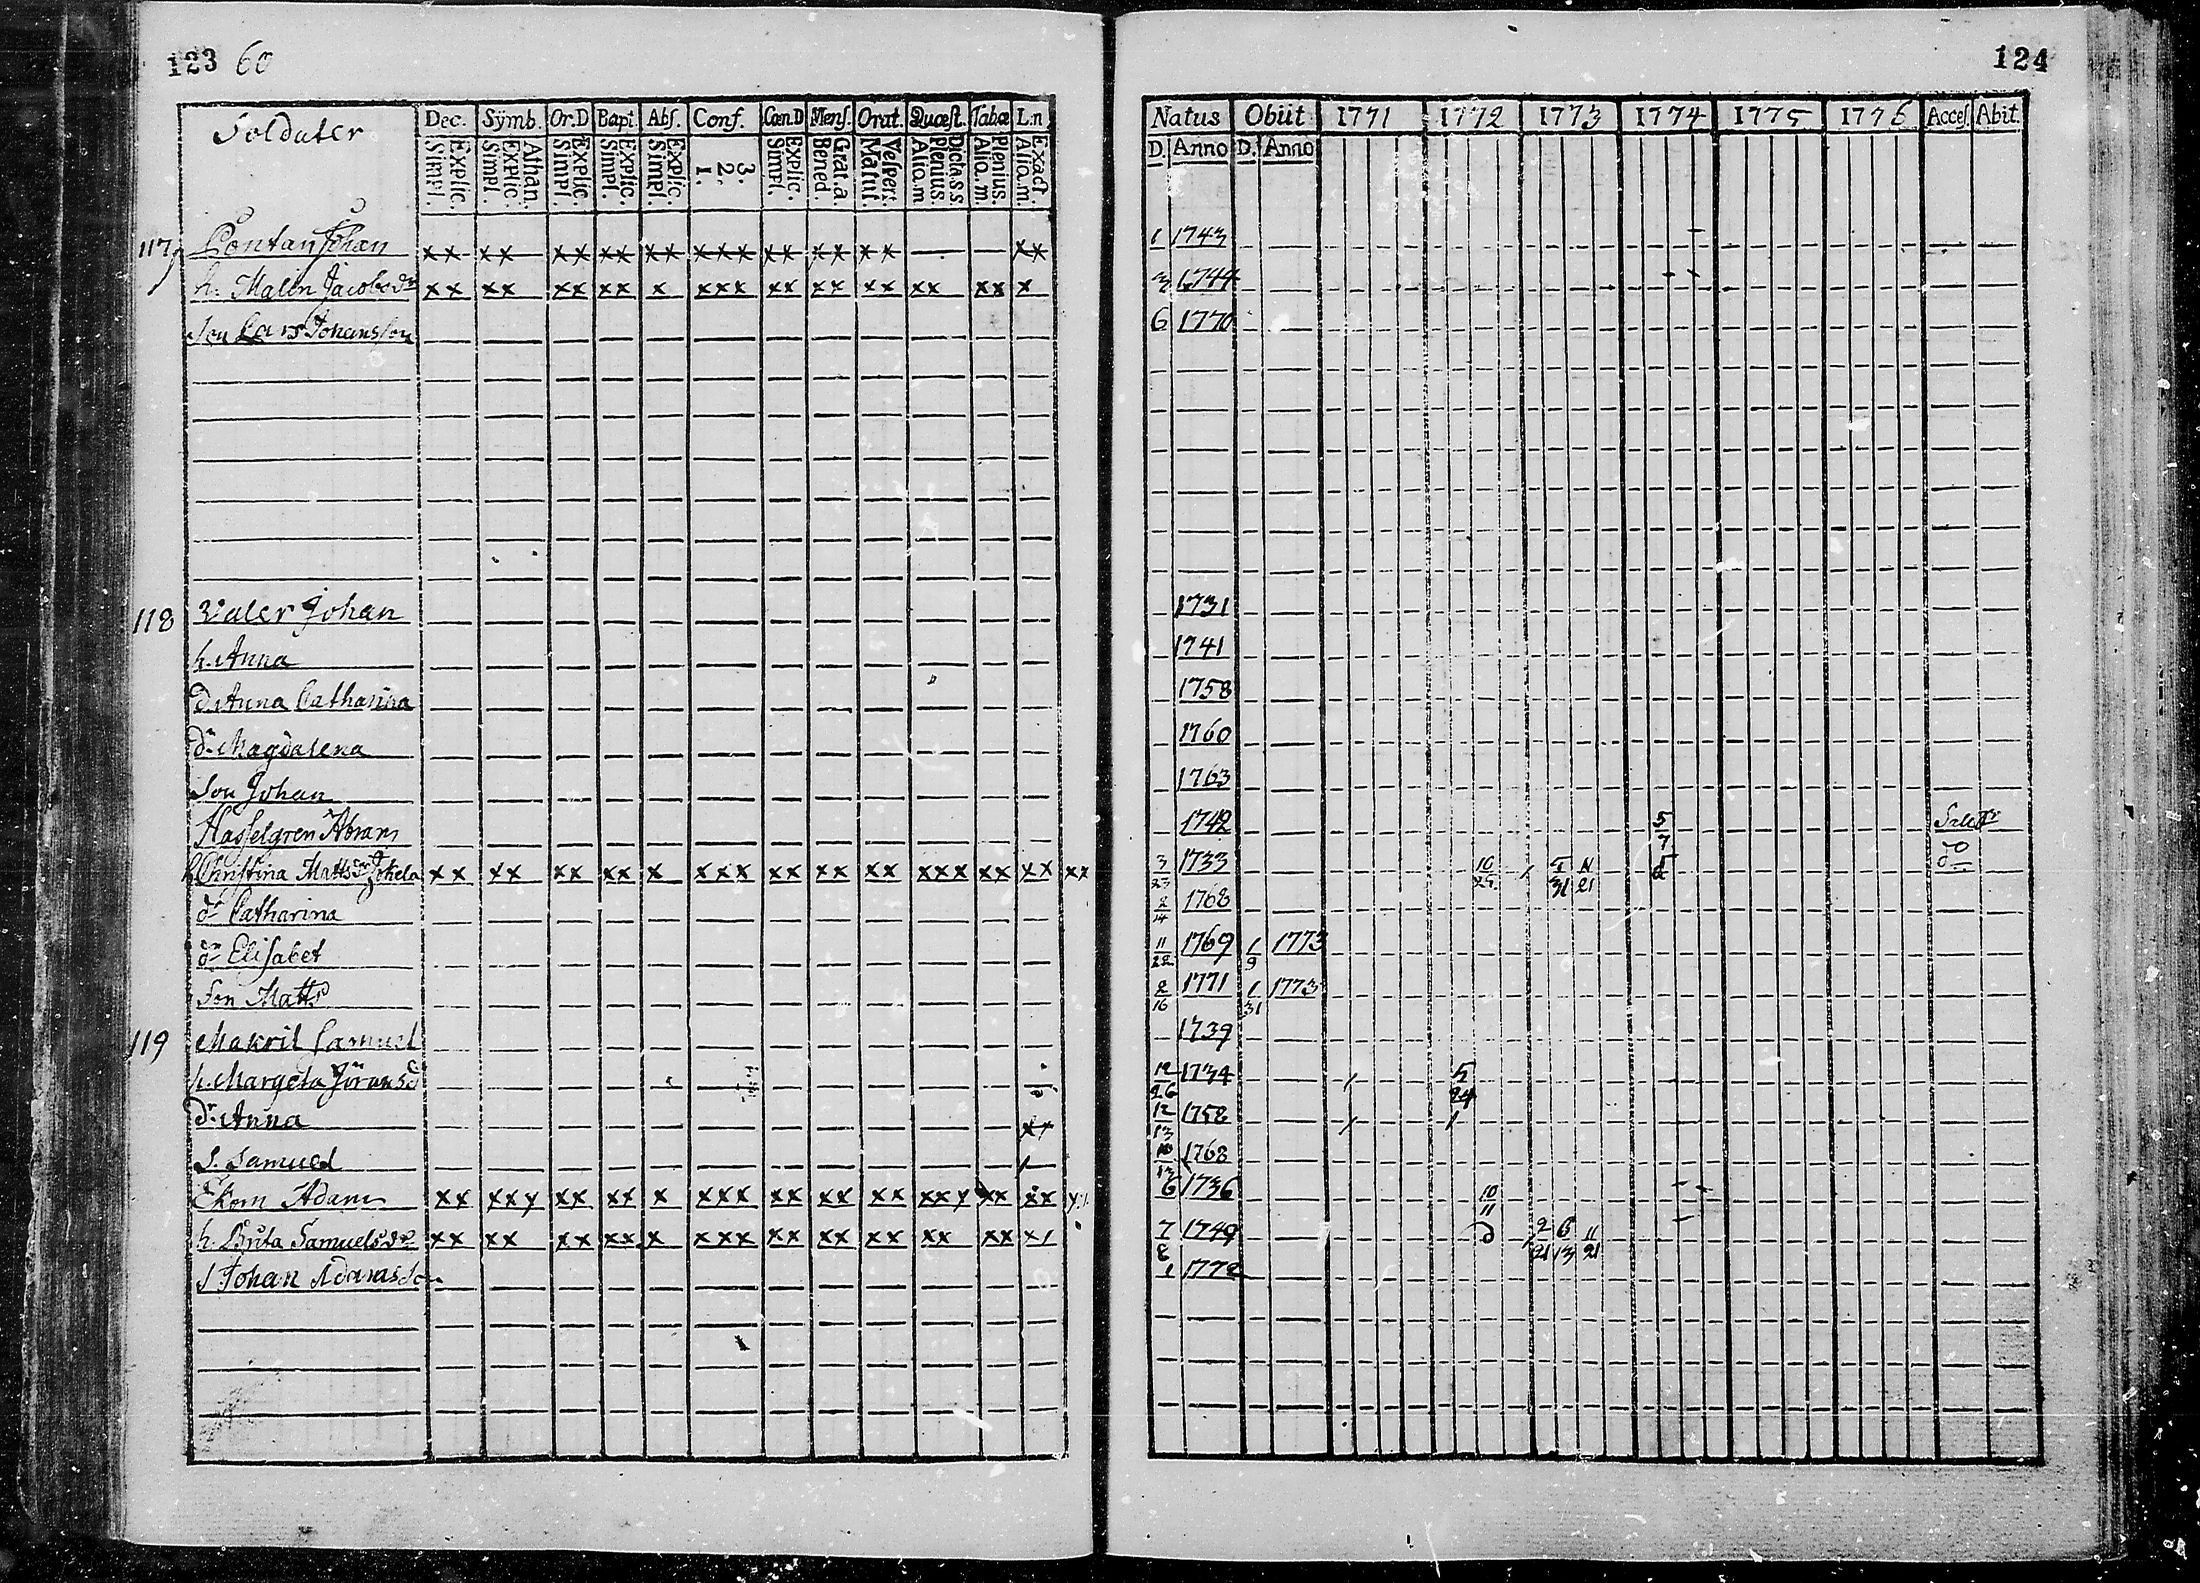 123 60
Soldater Dec. Sÿmb. Or.D Bapt. Abs. Conf. Cœn.D Mens. Orat. Quæst. Tabæ L:n
Explic. Simpl. Athan. Explic. Simpl. Explic. Simpl. Explic. Simpl. Explic. Simpl. 3. 2. 1. Explic. Simpl. Grat.a. Bened. Vespert. Matut. Dicta.s.s. Plenius. Alia.m Plenius. Alia.m. Exact. Alia.m.
117 Pontan Johan xx xx xx xx xx xxx xx xx xx xx
h. Malin Jacobsdr xx xx xx xx x xxx xx xx xx xx xx x
Son Lars Johansson
118 Valer Johan
h. Anna
dr Anna Catharina
dr Magdalena
Son Johan
Hasselgren Abram
h Christina Mattsdr Jokela xx xx xx xx x xxx xx xx xx xxx xx xx xx
dr Catharina
dr Elisabet
Son Matts
119 Makril Samuel
h. Margeta Jöransd
dr Anna
S. Samuel
Ekorn Adam xx xxy xx xx x xxx xx xx xx xxy xx xx
h. Brita Samuelsdr xx xx xx xx x xxx xx xx xx xx xx x1
S Johan Adamsson
124
Natus Obiit 1771 1772 1773 1774 1775 1776 Acces. Abit.
D. Anno D. Anno
1 1743
3 1744
6 1770
1731
1741
1758
1760
1763
1742 5/7
3/23 1733 10/25
2/14 1768
11/22 1769 1/9 1773
2/16 1771 1/31 1773
1739
12/26 1734 5/24
12/13 1758
10/13 1768
6 1736 10/11
7 1749 2/21 6/13 11/21
8/1 1772